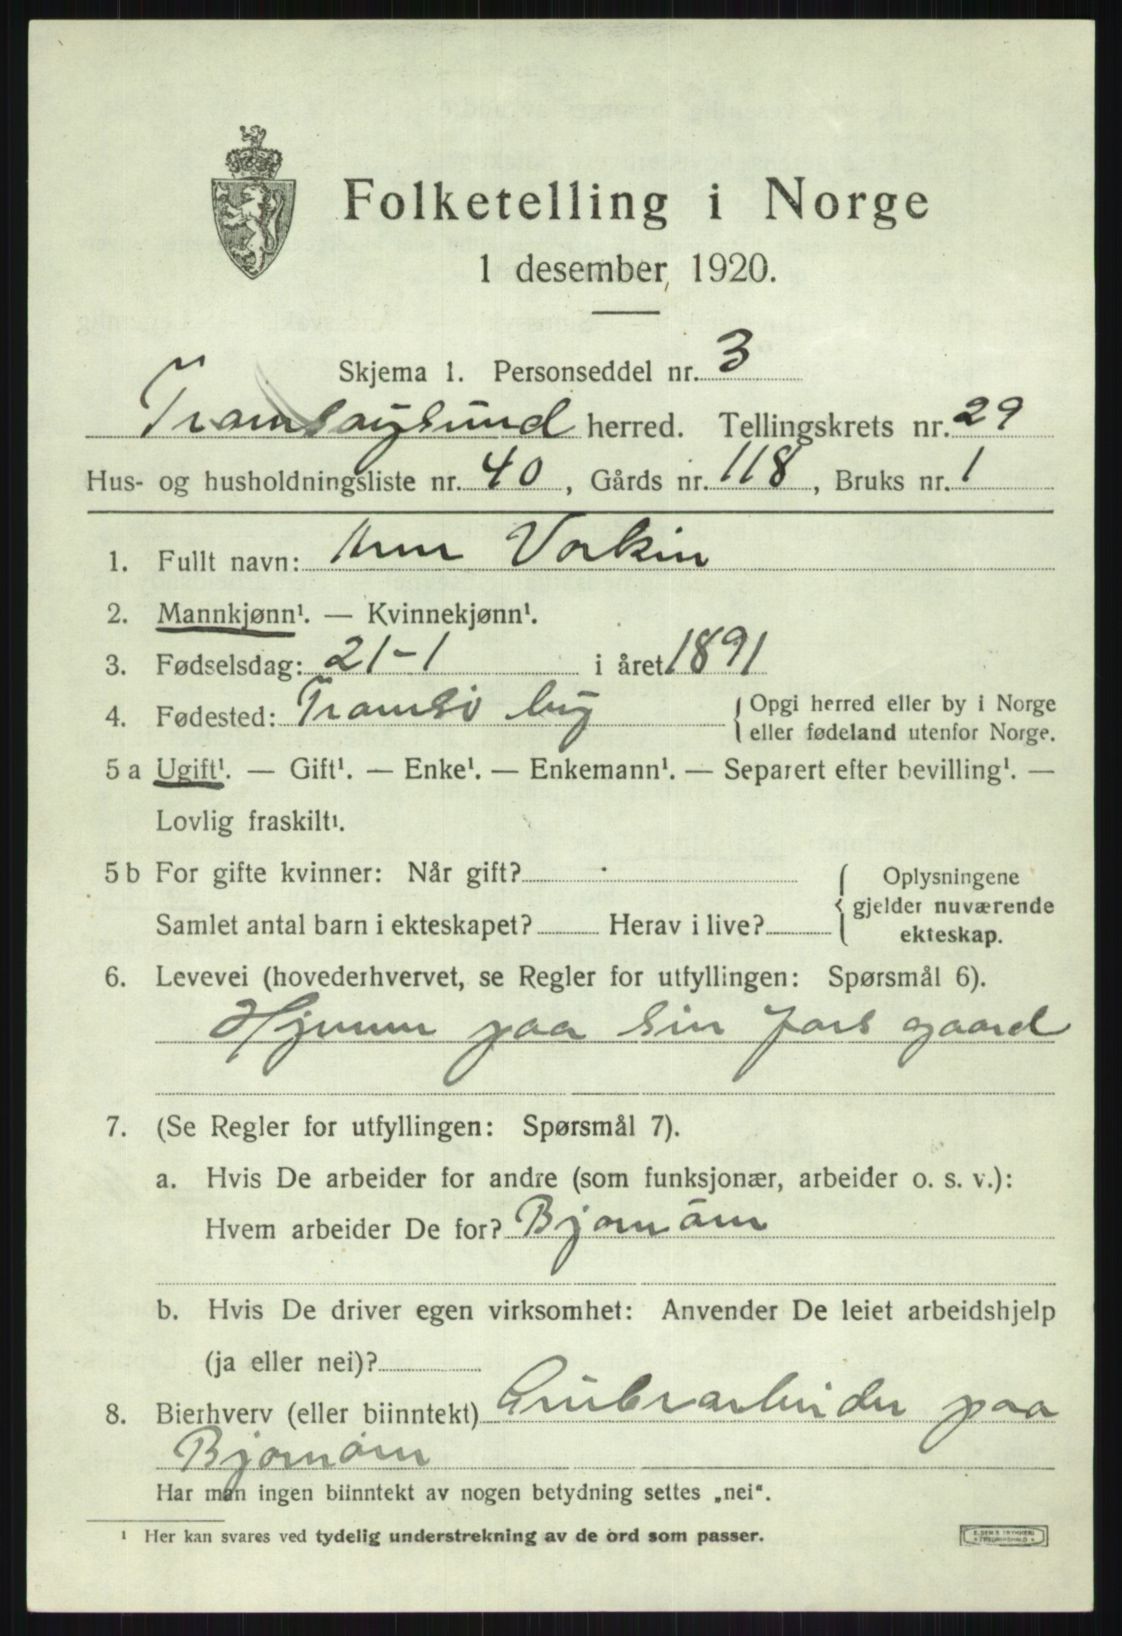 Folketelling i Norge
1 desember 1920.
Skjema 1. Personseddel nr. 3
Tromsøysund herred. Tellingskrets nr. 29
Hus- og husholdningsliste nr. 40, Gårds nr. 118, Bruks nr. 1
1. Fullt navn:
2. Mannkjønn¹. — Kvinnekjønn¹.
3. Fødselsdag: 21-1 i året 1891
4. Fødested: Tromsø by { Opgi herred eller by i Norge
eller fødeland utenfor Norge.
5 a Ugift¹. — Gift¹. — Enke¹. — Enkemann¹. — Separert efter bevilling¹. —
Lovlig fraskilt¹.
5 b For gifte kvinner: Når gift? { Oplysningene
gjelder nuværende
Samlet antal barn i ekteskapet? Herav i live?
ekteskap.
6. Levevei (hovederhvervet, se Regler for utfyllingen: Spørsmål 6).
Hjemme paa sin fars gaard
7. (Se Regler for utfyllingen: Spørsmål 7).
a. Hvis De arbeider for andre (som funksjonær, arbeider o. s. v.):
Hvem arbeider De for? Bjørnøen
b. Hvis De driver egen virksomhet: Anvender De leiet arbeidshjelp
(ja eller nei)?
8. Bierhverv (eller biinntekt) Grubearbeider paa
Bjørnøen
Har man ingen biinntekt av nogen betydning settes „nei“.
¹ Her kan svares ved tydelig understrekning av de ord som passer.